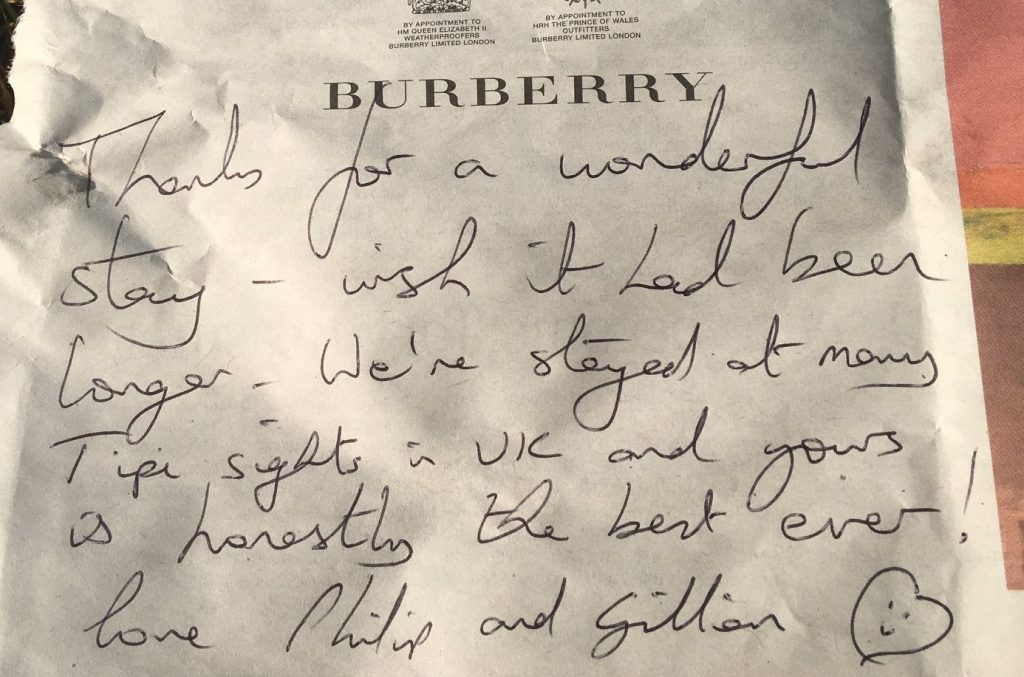 BY APPOINTMENT TO
HM QUEEN ELIZABETH II
WEATHERPROOFERS
BURBERRY LIMITED LONDON
BY APPOINTMENT TO
HRH THE PRINCE OF WALES
OUTFITTERS
BURBERRY LIMITED LONDON
BURBERRY
Thanks for a wonderful
stay – wish it had been
longer – We're stayed at many
Tipi sights in UK and yours
is honestly the best ever!
love Philip and Gillian